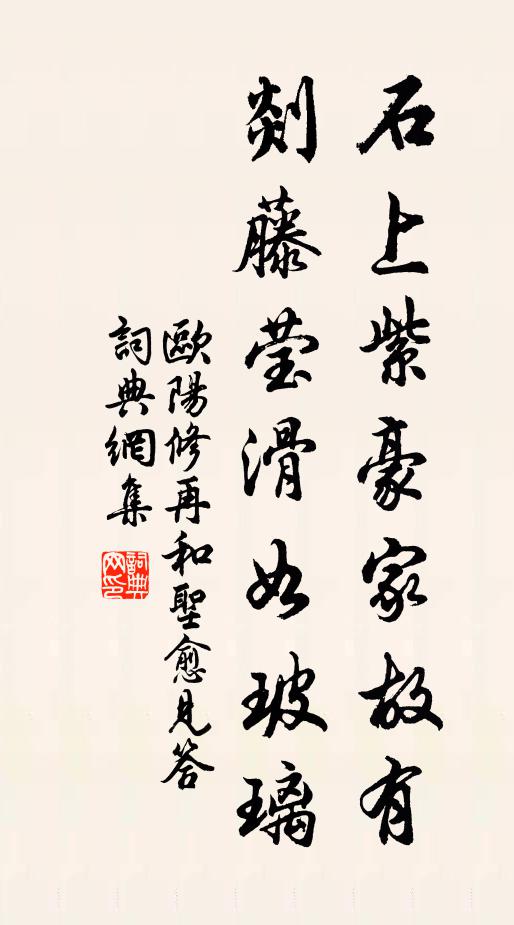 石上紫豪家故有
剡藤莹滑如玻璃
歐陽修再和聖愈見答
詞典網集
詞典
网印